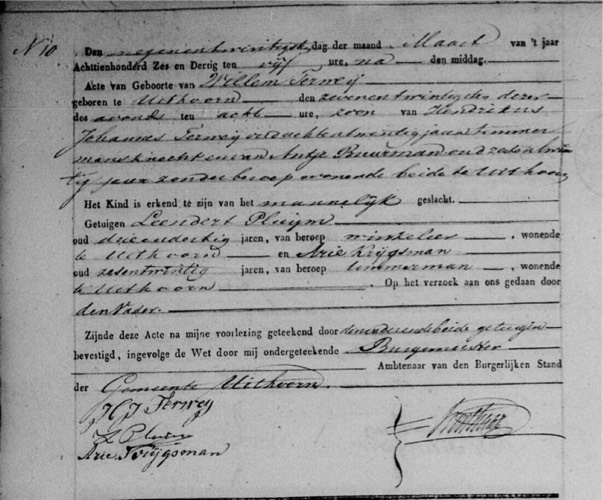 N 10
Den negenentwintigste dag der maand Maart van 't jaar
Achttienhonderd Zes en Dertig ten vijf ure, na den middag.
Acte van Geboorte van Willem Terweij
geboren te Uithoorn den zevenentwintigsten dezer
des avonds ten acht ure, zoon van Hendrikus
Johannes Terweij oud achtentwintig jaren timmer
mansknecht en van Antje Buurman oud zesentwin
tig jaren zonder beroep wonende beide te Uithoorn
Het Kind is erkend te zijn van het mannelijk geslacht.
Getuigen Leendert Pluijm
oud drieendertig jaren, van beroep winkelier, wonende
te Uithoorn en Arie Krijgsman
oud zesentwintig jaren, van beroep timmerman, wonende
te Uithoorn. Op het verzoek aan ons gedaan door
den Vader.
Zijnde deze Acte na mijne voorlezing geteekend door den vader en de beide getuigen
bevestigd, ingevolge de Wet door mij ondergeteekende Burgemeester
Ambtenaar van den Burgerlijken Stand
der Gemeente Uithoorn.
H J Terweij
L Pluim
Arie Krijgsman